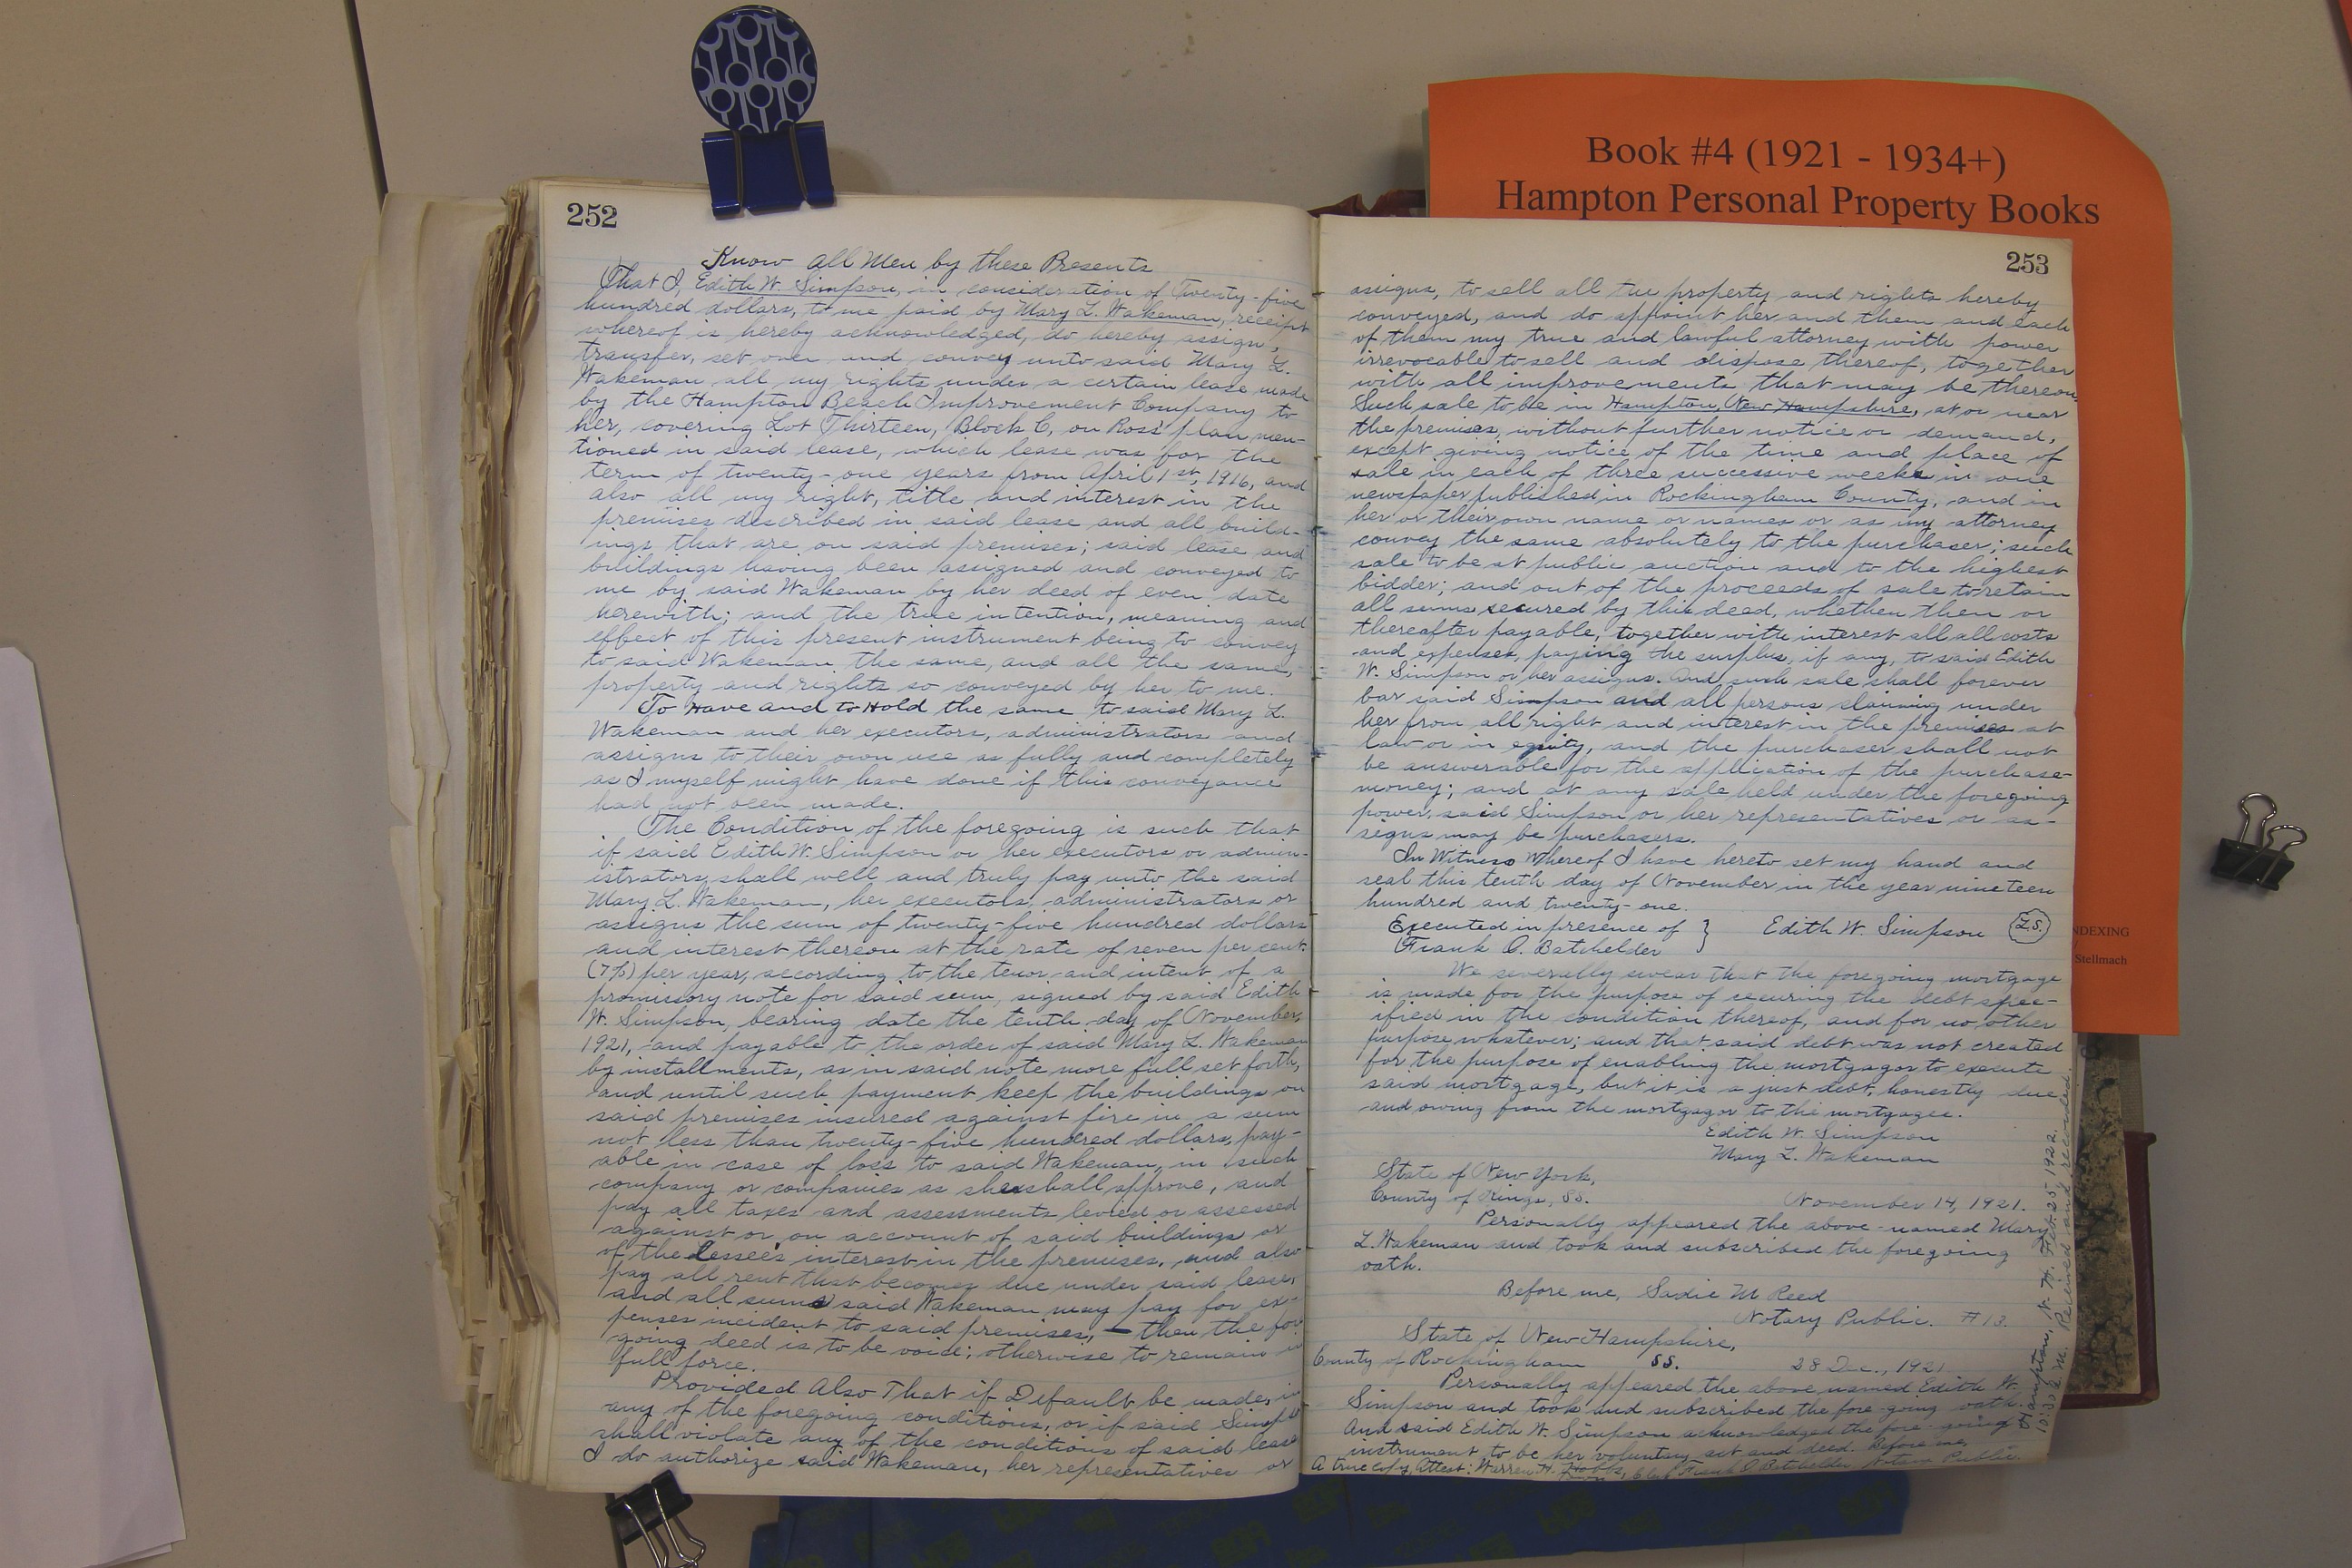 Book #4 (1921 - 1934+)
Hampton Personal Property Books
NDEXING
Stellmach
252
Know All Men by these Presents
That I, Edith W. Simpson, in consideration of Twenty-five
hundred dollars, to me paid by Mary L. Wakeman, receipt
whereof is hereby acknowledged, do hereby assign,
transfer, set over and convey unto said Mary L.
Wakeman all my rights under a certain lease made
by the Hampton Beach Improvement Company to
her, covering Lot Thirteen, Block C, on Ross' plan men-
tioned in said lease, which lease was for the
term of twenty-one years from April 1st, 1916, and
also all my right, title and interest in the
premises described in said lease and all build-
ings that are on said premises; said lease and
buildings having been assigned and conveyed to
me by said Wakeman by her deed of even date
herewith; and the true intention, meaning and
effect of this present instrument being to convey
to said Wakeman, the same, and all the same,
property and rights so conveyed by her to me.
To Have and to Hold the same to said Mary L.
Wakeman and her executors, administrators and
assigns to their own use as fully and completely
as I myself might have done if this conveyance
had not been made.
The Condition of the foregoing is such that
if said Edith W. Simpson or her executors or admin-
istrators shall well and truly pay unto the said
Mary L. Wakeman, her executors, administrators or
assigns the sum of twenty-five hundred dollars
and interest thereon at the rate of seven per cent.
(7%) per year, according to the tenor and intent of a
promissory note for said sum, signed by said Edith
W. Simpson, bearing date the tenth day of November,
1921, and payable to the order of said Mary L. Wakeman
by installments, as in said note more full set forth,
and until such payment keep the buildings on
said premises insured against fire in a sum
not less than twenty-five hundred dollars, pay-
able in case of loss to said Wakeman, in such
company or companies as she shall approve, and
pay all taxes and assessments levied or assessed
against or on account of said buildings or
of the Lessee's interest in the premises, and also
pay all rent that becomes due under said lease,
and all sums said Wakeman may pay for ex-
penses incident to said premises, — then the for
going deed is to be void; otherwise to remain in
full force.
Provided Also That if Default be made, in
any of the foregoing conditions, or if said Simps
shall violate any of the conditions of said lease
I do authorize said Wakeman, her representatives or
253
assigns, to sell all the property and rights hereby
conveyed, and do appoint her and them and each
of them my true and lawful attorney with power
irrevocable to sell and dispose thereof, together
with all improvements that may be thereon.
Such sale to be in Hampton, New Hampshire, at or near
the premises, without further notice or demand,
except giving notice of the time and place of
sale in each of three successive weeks in one
newspaper published in Rockingham County, and in
her or their own name or names or as my attorney
convey the same absolutely to the purchaser; such
sale to be at public auction and to the highest
bidder; and out of the proceeds of sale to retain
all sums secured by this deed, whether then or
thereafter payable, together with interest all all costs
and expenses, paying the surplus, if any, to said Edith
W. Simpson or her assigns. And such sale shall forever
bar said Simpson and all persons claiming under
her from all right and interest in the premises at
law or in equity, and the purchaser shall not
be answerable for the application of the purchase-
money; and at any sale held under the foregoing
power, said Simpson or her representatives or as-
signs may be purchasers.
In Witness Whereof I have hereto set my hand and
seal this tenth day of November in the year nineteen
hundred and twenty-one.
Executed in presence of } Edith W. Simpson L.S.
Frank C. Batchelder
We severally swear that the foregoing mortgage
is made for the purpose of securing the debt spec-
ified in the condition thereof, and for no other
purpose whatever; and that said debt was not created
for the purpose of enabling the mortgagor to execute
said mortgage, but it is a just debt, honestly due
and owing from the mortgagor to the mortgagee.
Edith W. Simpson
Mary L. Wakeman
State of New York,
County of Kings, SS. November 14, 1921.
Personally appeared the above-named Mary
L. Wakeman and took and subscribed the foregoing
oath.
Before me, Sadie M Reed
Notary Public. #13.
State of New Hampshire,
County of Rockingham SS. 28 Dec., 1921
Personally appeared the above named Edith W.
Simpson and took and subscribed the fore-going oath.
And said Edith W. Simpson acknowledged the fore-going
instrument to be her voluntary act and deed. Before me,
A true copy, Attest: Warren H. Hobbs, Clerk Frank C Batchelder Notary Public
Hampton, N. H. Feb. 25, 1922.
10:30 A. M. Received and recorded.